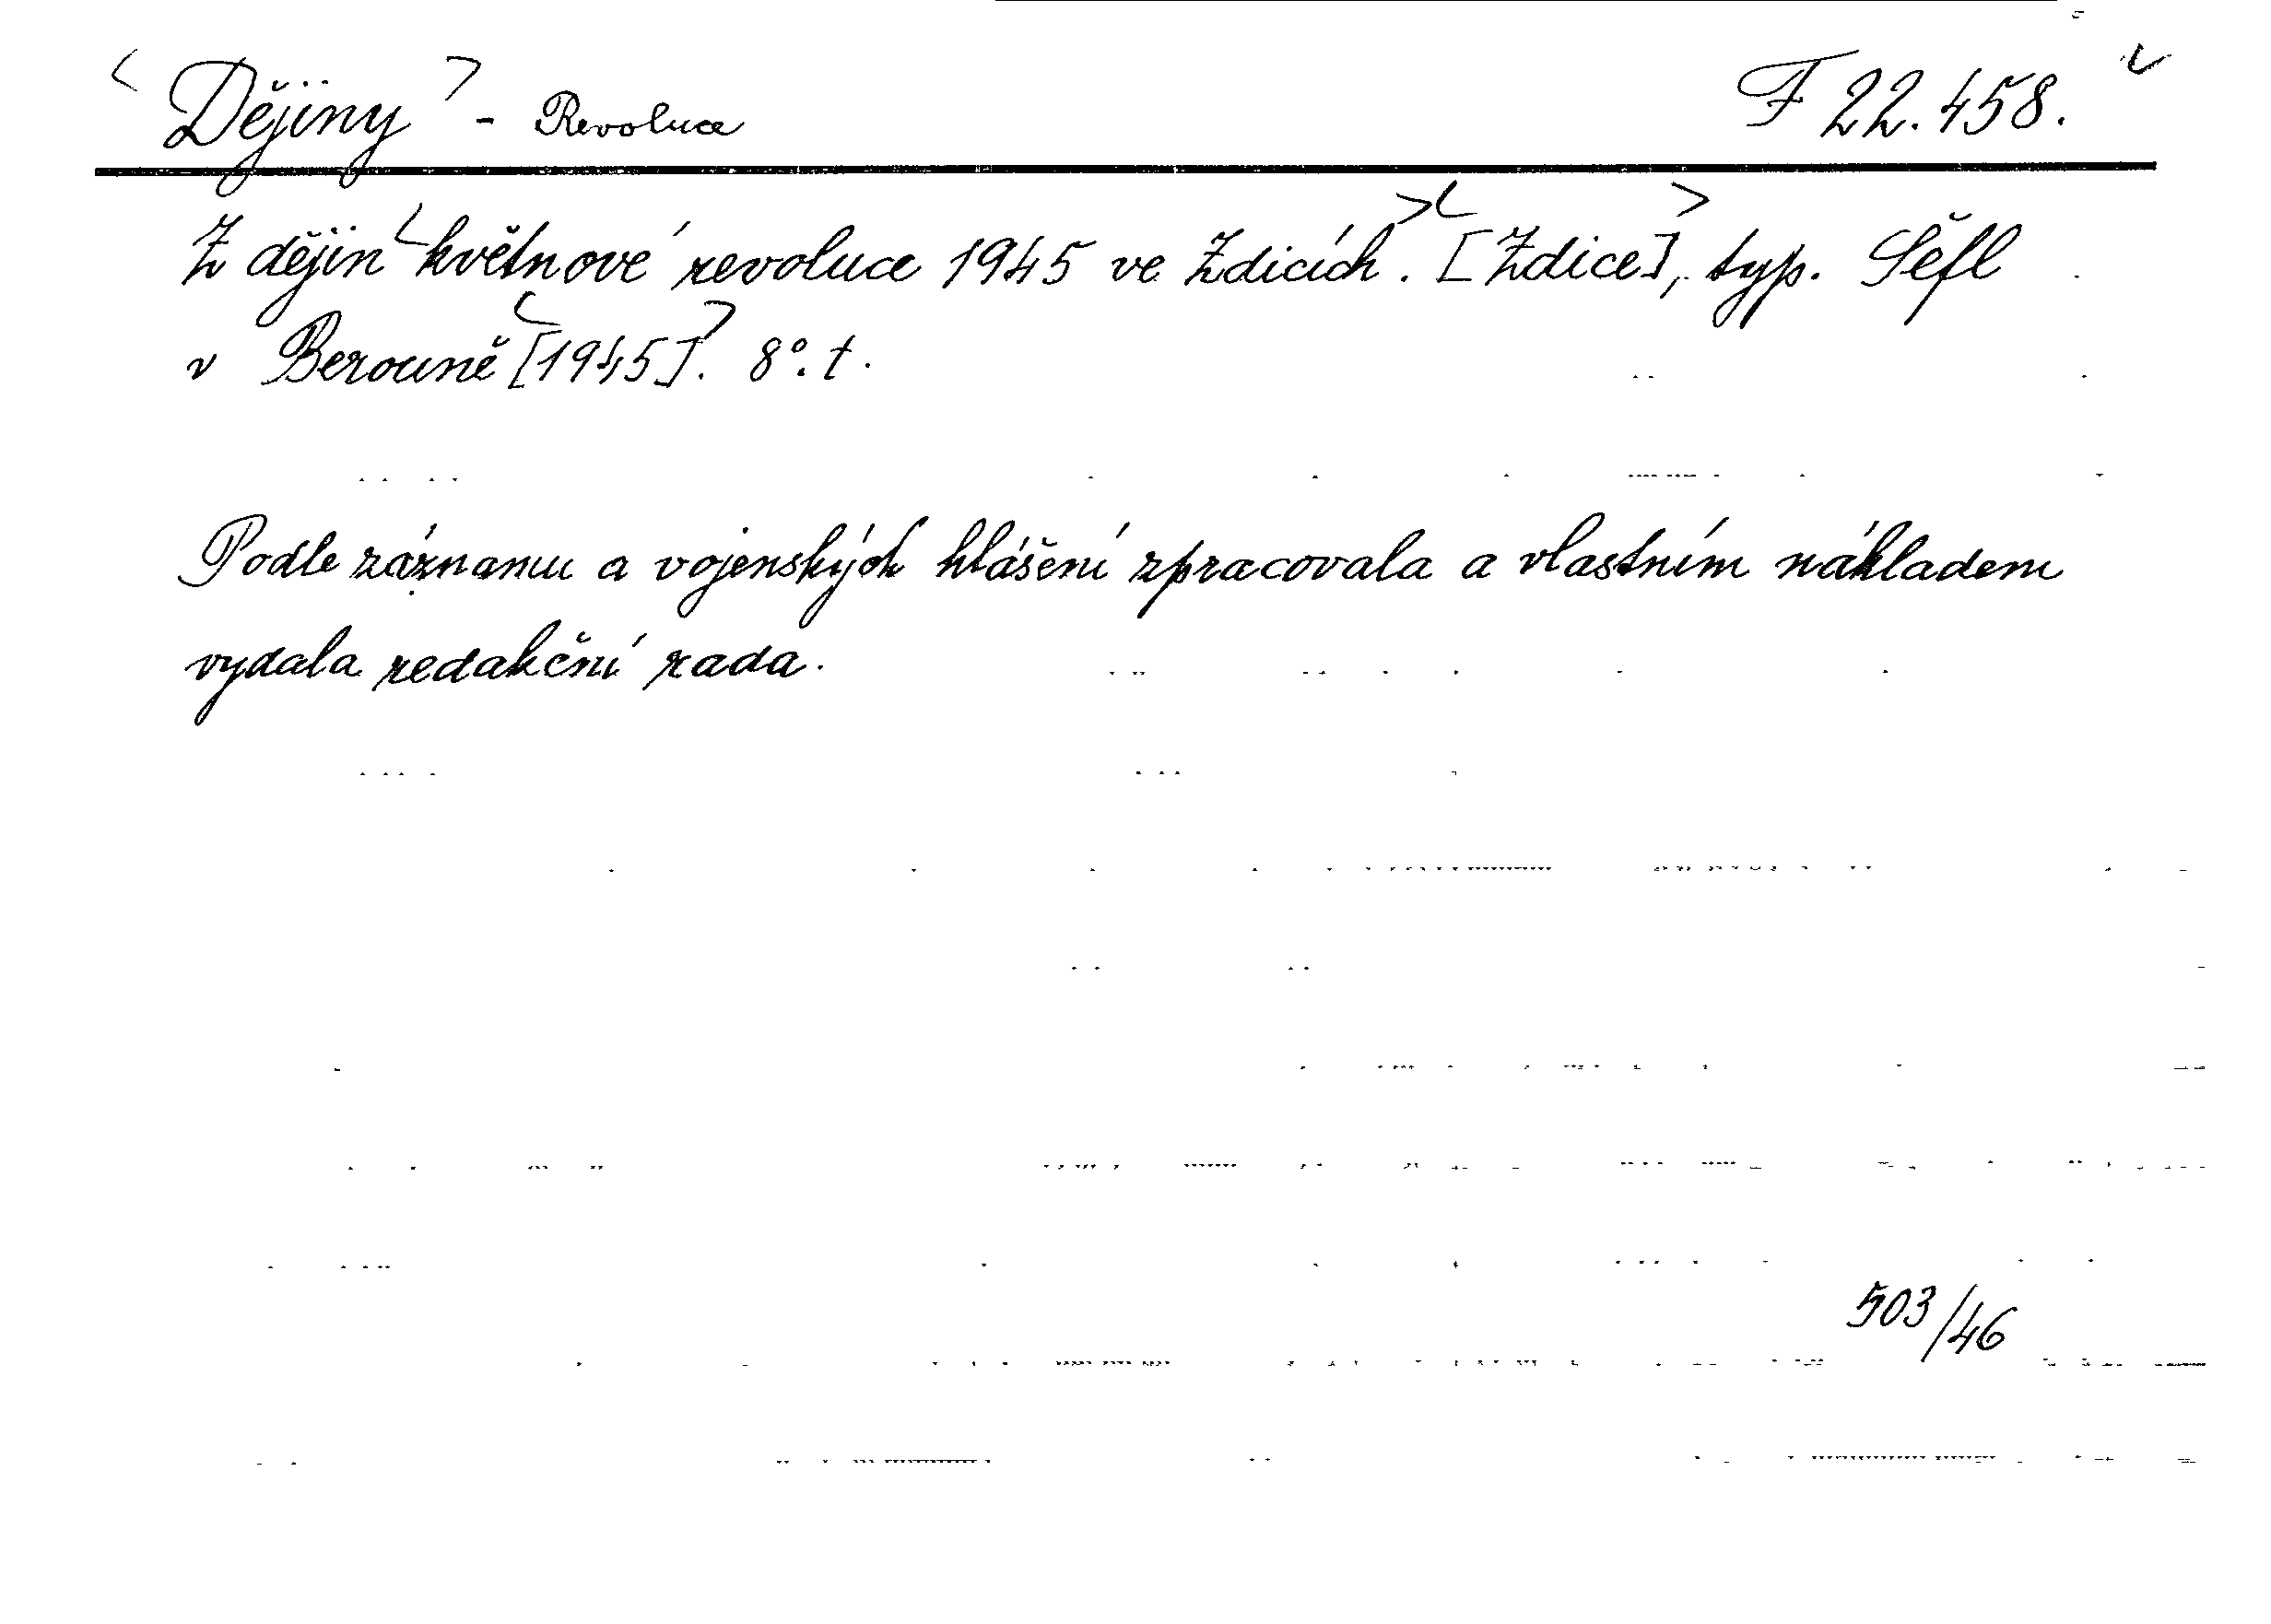 <Dějiny> - Revoluce F 22.458.
Z dějin <květnové revoluce 1945 ve Zdicích.> <[Zdice],> typ. Šefl
v Berouně <[1945].> 8°. t.
Podle záznamu a vojenských hlášení zpracovala a vlastním nákladem
vydala redakční rada.
503/46